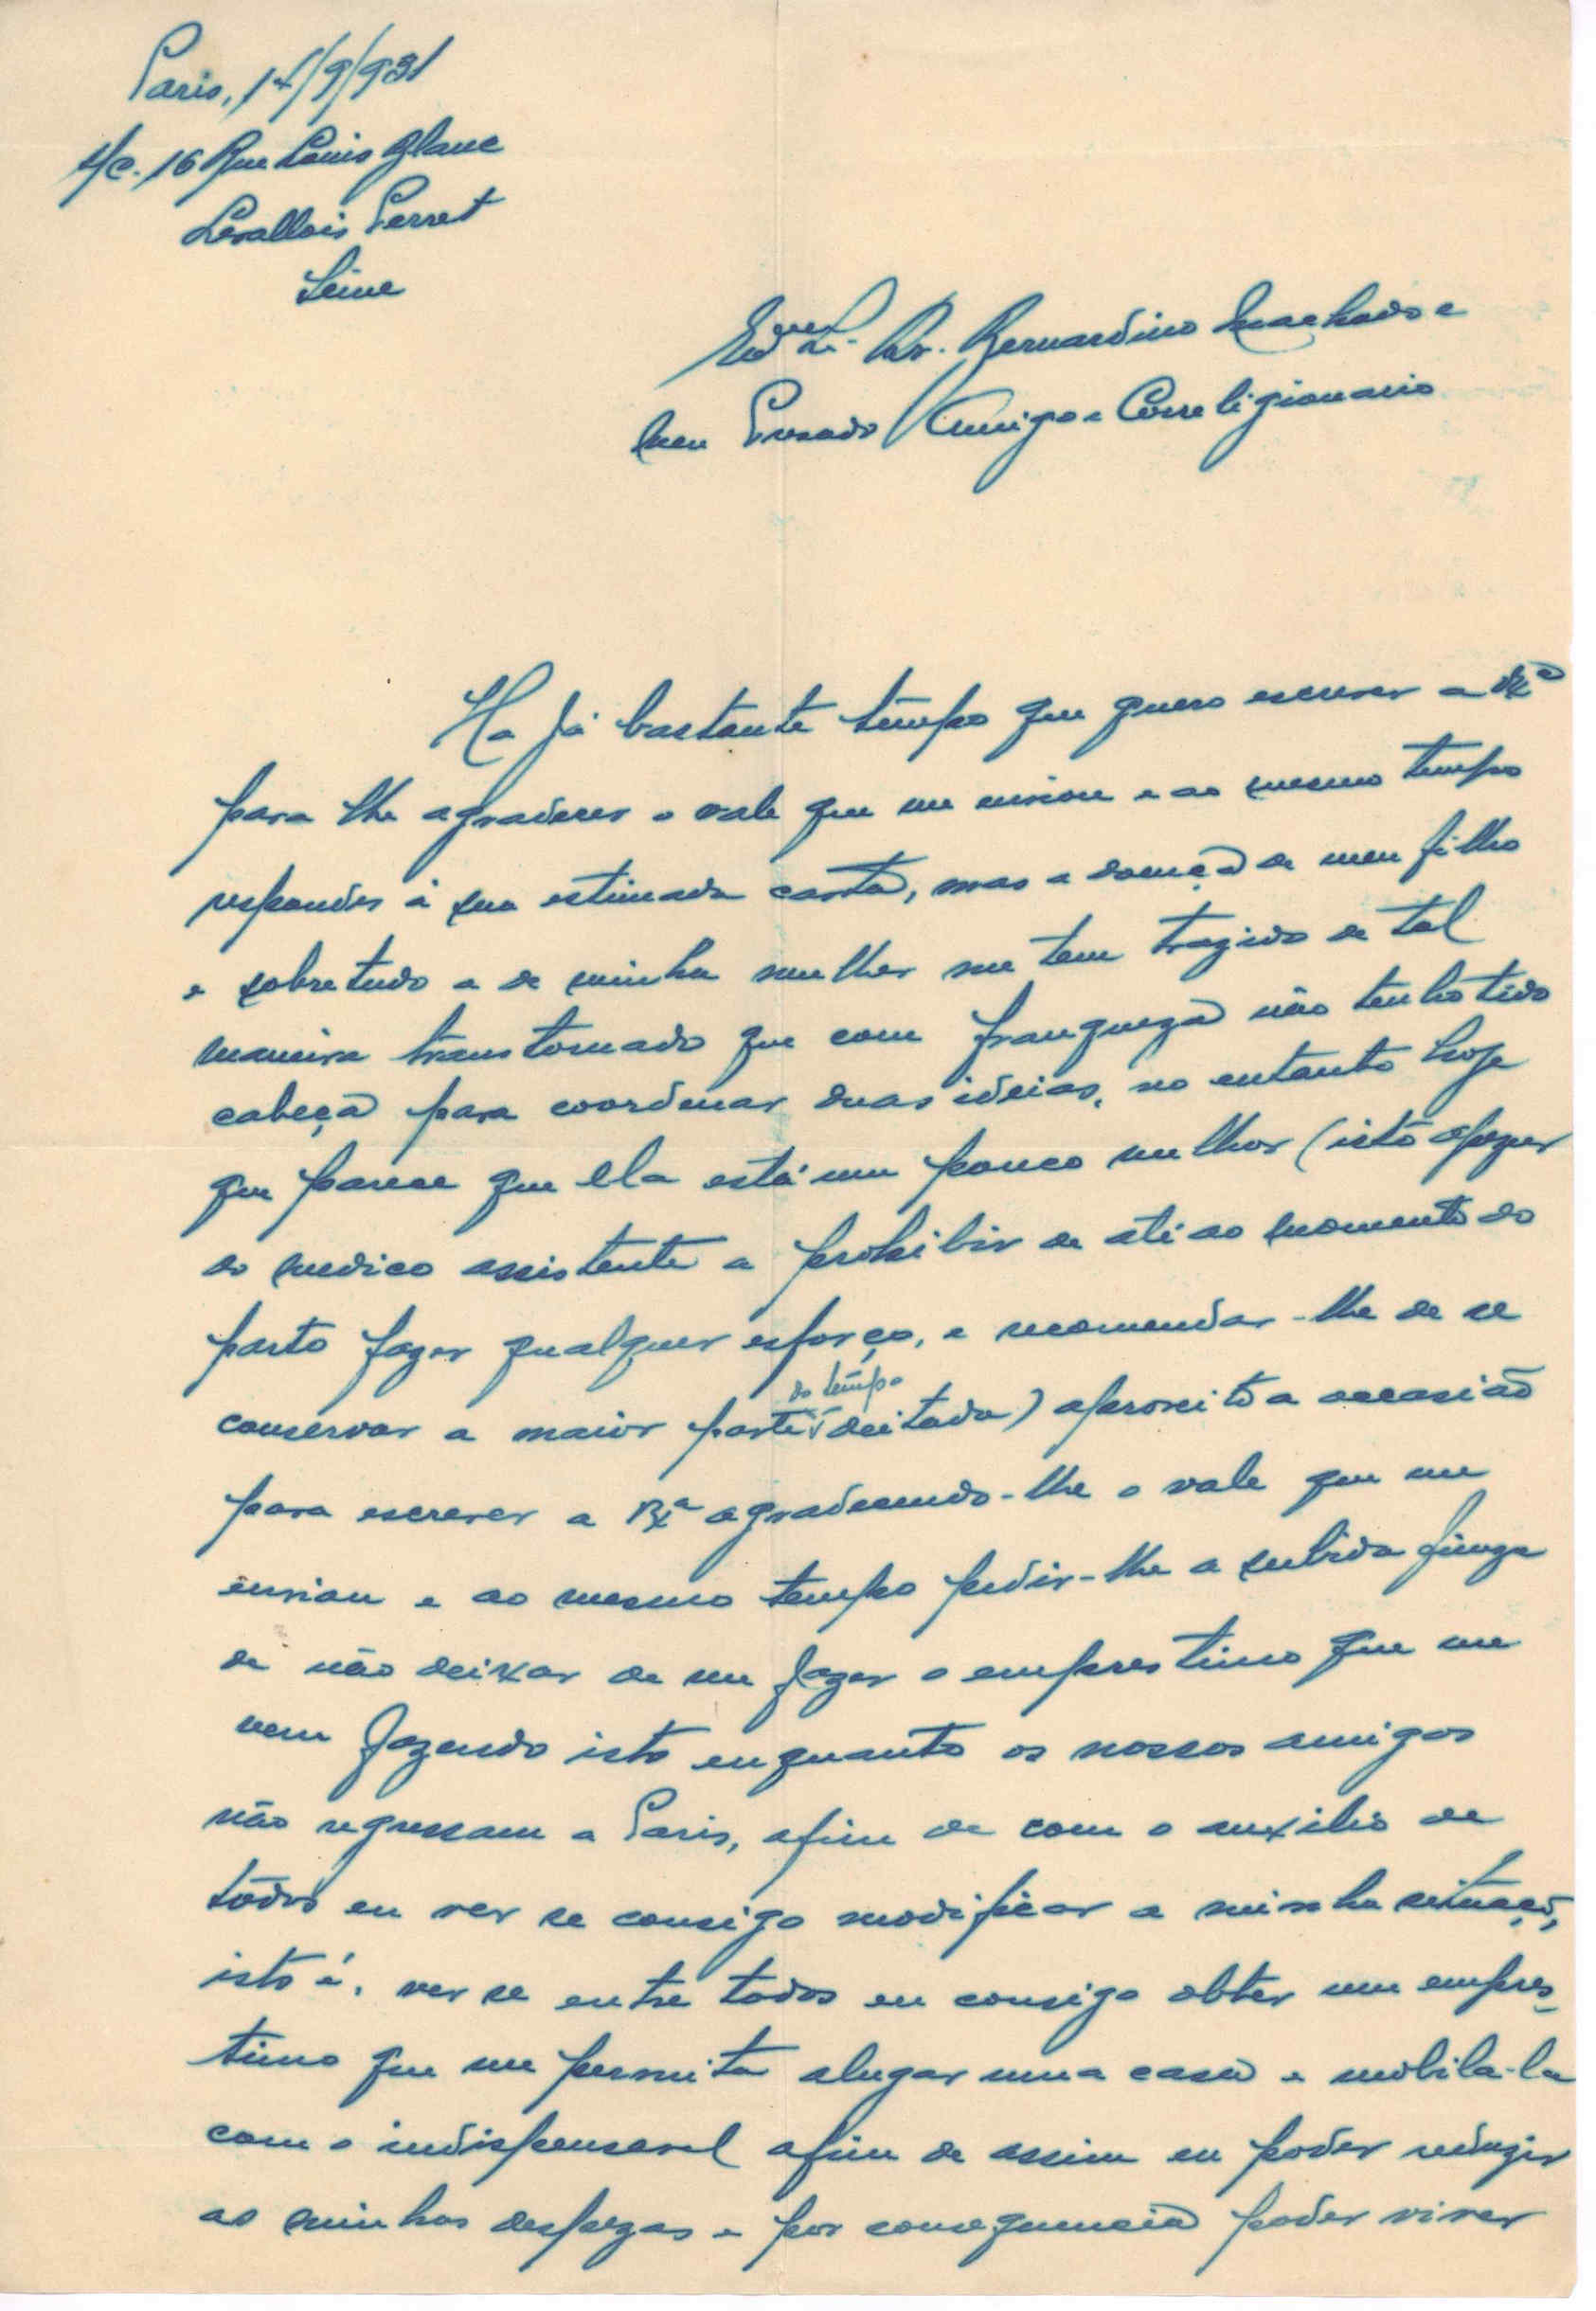 Paris, 17/9/931
s/c. 16 Rue Louis Blanc
Levallois Perret
Seine
Exmo Sr. Dr. Bernardino Machado e
meu Prezado Amigo e Correligionario
Ha já bastante tempo que quero escrever a V. Exa
para lhe agradecer o vale que me enviou e ao mesmo tempo
responder á sua estimada carta, mas a doença de meu filho
e sobretudo a de minha mulher me tem trazido de tal
maneira transtornado que com franqueza não tenho tido
cabeça para coordenar duas ideias, no entanto hoje
que parece que ela está um pouco melhor (isto apezar
do medico assistente a prohibir de até ao momento do
parto fazer qualquer esforço, e recomendar-lhe de se
conservar a maior parte do tempo deitada) aproveito a occasião
para escrever a V. Exa agradecendo-lhe o vale que me
enviou e ao mesmo tempo pedir-lhe a subida fineza
de não deixar de me fazer o emprestimo que me
vem fazendo isto enquanto os nossos amigos
não regressam a Paris, afim de com o auxilio de
todos eu ver se consigo modificar a minha situação,
isto é, ver se entre todos eu consigo obter um empres-
timo que me permita alugar uma casa e mobila-la
com o indispensavel afim de assim eu poder reduzir
as minhas despezas e por consequencia poder viver